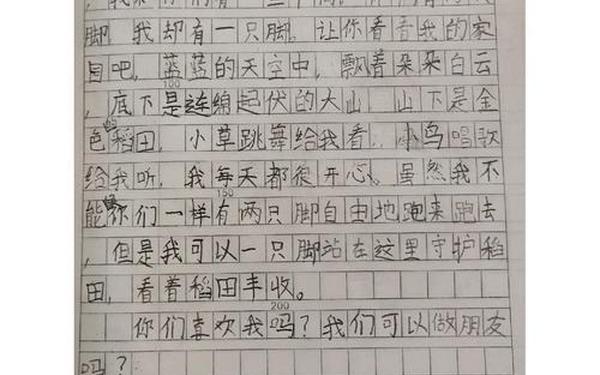 脚 我却有一只脚。让你看看我的家
目吧，蓝蓝的天空中，飘着朵朵白云
100
，底下是连绵起伏的大山 山下是金
色的稻田，小草跳舞给我看，小鸟唱歌
给我听，我每天都很开心。虽然我不
150
能像你们一样有两只脚自由地跑来跑去
，但是我可以一只脚站在这里守护稻
田，看着稻田丰收。
200
你们喜欢我吗？我们可以做朋友
吗？